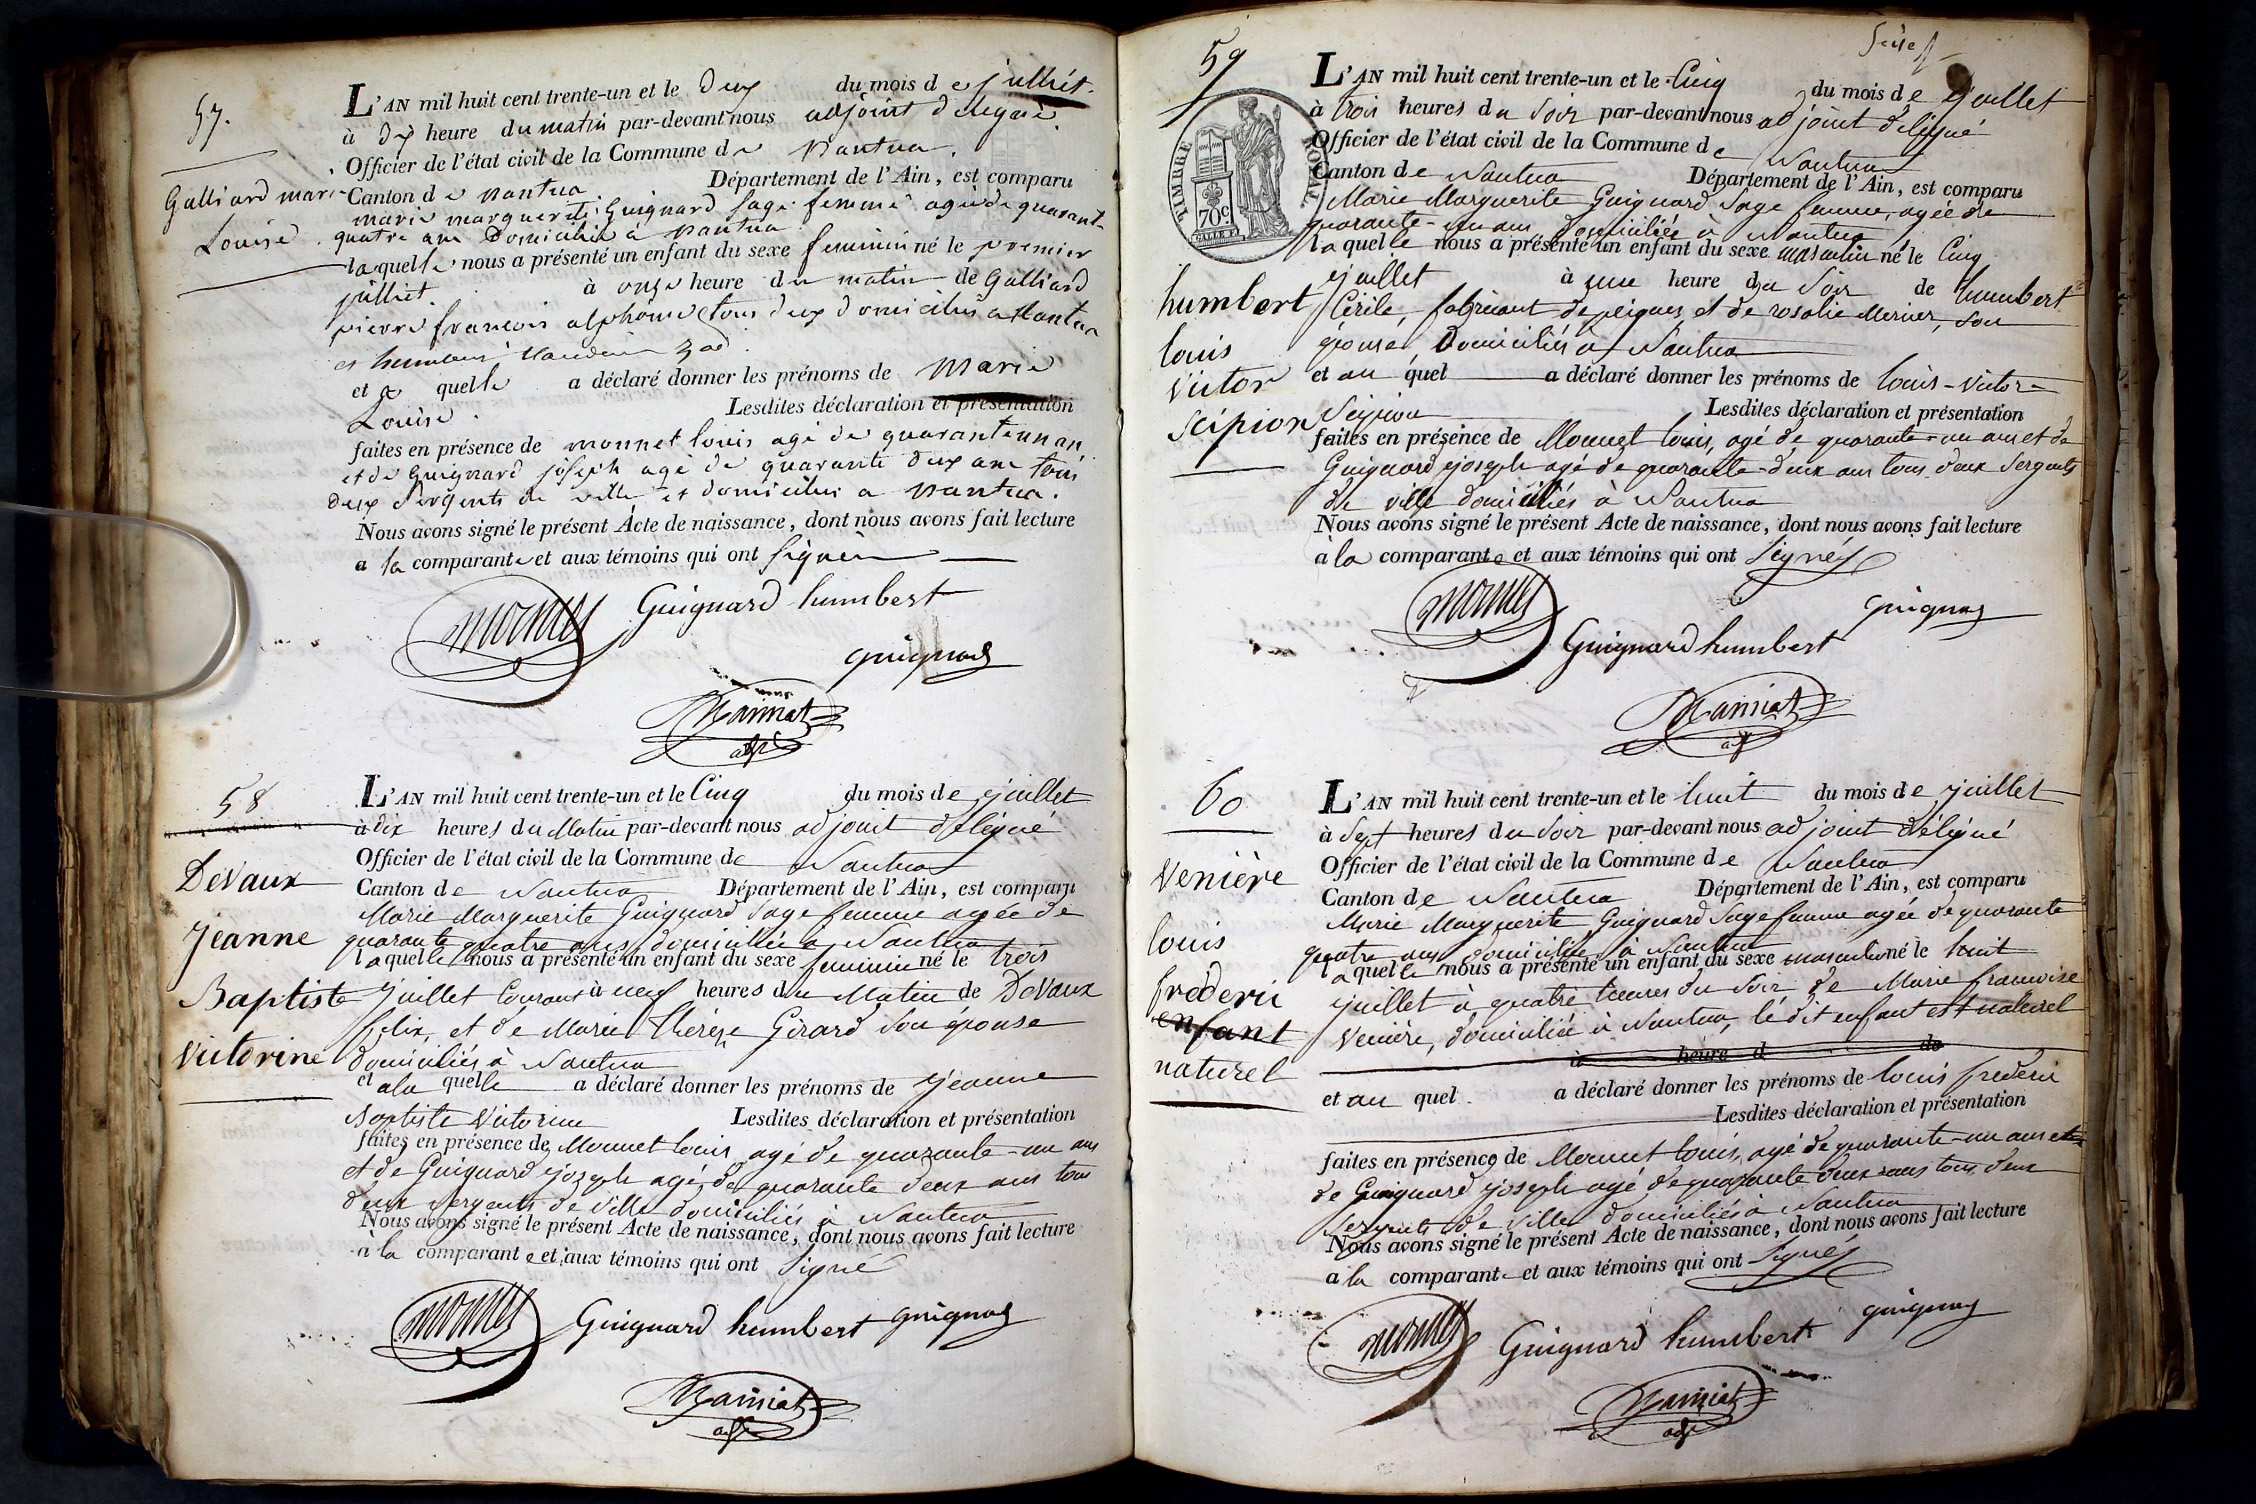 57.
Galliard marie
Louise
L'AN mil huit cent trente-un et le deux du mois de julliet.
à dix heure du matin par-devant nous adjoint délégué
Officier de l'état civil de la Commune de Nantua.
Canton de Nantua Département de l'Ain, est comparu
marie marguerite Guignard sage femme agée de quarante
quatre ans Domiciliée à Nantua
laquelle nous a présenté un enfant du sexe feminin né le premier
julliet. à onze heure du matin de Galliard
pierre francois alphonse tous deux domiciliés a Nantua
et
et a quelle a déclaré donner les prénoms de Marie
Louise. Lesdites déclaration et présentation
faites en présence de monnet louis agé de quarante un an
et de Guignard joseph agé de quarante deux ans tous
deux Sergents de ville et domiciliés a Nantua.
Nous avons signé le présent Acte de naissance, dont nous avons fait lecture
a la comparante et aux témoins qui ont signé
monnet Guignard humbert
guignard
adj
58
Devaux
Jeanne
Baptiste
Victorine
L'AN mil huit cent trente-un et le Cinq du mois de juillet
à dix heures du Matin par-devant nous adjoint délégué
Officier de l'état civil de la Commune de Nantua
Canton de Nantua Département de l'Ain, est comparu
Marie Marguerite Guignard Sage femme agée de
quarante quatre ans, domiciliée à Nantua
laquelle nous a présenté un enfant du sexe feminin né le trois
Juillet Courant à neuf heures du Matin de Devaux
felix, et de Marie Thérèze Girard Son épouse
domiciliés à Nantua
et a la quelle a déclaré donner les prénoms de Jeanne
Baptiste Victorine Lesdites déclaration et présentation
faites en présence de Monnet louis agé de quarante-un ans
et de Guignard joseph agé de quarante deux ans tous
deux sergents de Ville domiciliés à Nantua
Nous avons signé le présent Acte de naissance, dont nous avons fait lecture
à la comparante et aux témoins qui ont Signé
monnet Guignard humbert guignard
adj
59
TIMBRE ROYAL
70c.
humbert
louis
victor
scipion
L'AN mil huit cent trente-un et le Cinq du mois de Juillet
à trois heures du Soir par-devant nous adjoint délégué
Officier de l'état civil de la Commune de Nantua
Canton de Nantua Département de l'Ain, est comparu
Marie Marguerite Guignard Sage femme, agée de
quarante- ans, domiciliée à Nantua
laquelle nous a présenté un enfant du sexe masculin né le Cinq
juillet à une heure du Soir de humbert
Cirile, fabricant de peignes, et de rosalie Mernier, son
épouse, Domiciliés à Nantua
et au quel a déclaré donner les prénoms de louis-victor-
Scipion Lesdites déclaration et présentation
faites en présence de Monnet louis, agé de quarante-un ans et de
Guignard joseph agé de quarante-deux ans tous deux Sergents
de ville domiciliés à Nantua
Nous avons signé le présent Acte de naissance, dont nous avons fait lecture
à la comparante et aux témoins qui ont Signés
monnet guignard
Guignard humbert
adj
60
Venière
louis
frederic
enfant
naturel
L'AN mil huit cent trente-un et le huit du mois de juillet
à Sept heures du Soir par-devant nous adjoint délégué
Officier de l'état civil de la Commune de Nantua
Canton de Nantua Département de l'Ain, est comparu
Marie Marguerite Guignard Sage femme agée de quarante
quatre ans domiciliée à Nantua
laquelle nous a présenté un enfant du sexe masculin né le huit
juillet à quatre heures du Soir de Marie francoise
Venière, domiciliée à Nantua, le dit enfant est naturel
à heure d de
et au quel a déclaré donner les prénoms de louis frederic
Lesdites déclaration et présentation
faites en présence de Monnet louis, agé de quarante-un ans et
de Guignard joseph agé de quarante deux ans tous deux
Sergents de Ville domiciliés à Nantua
Nous avons signé le présent Acte de naissance, dont nous avons fait lecture
a la comparante et aux témoins qui ont Signés
monnet Guignard humbert guignard
adj